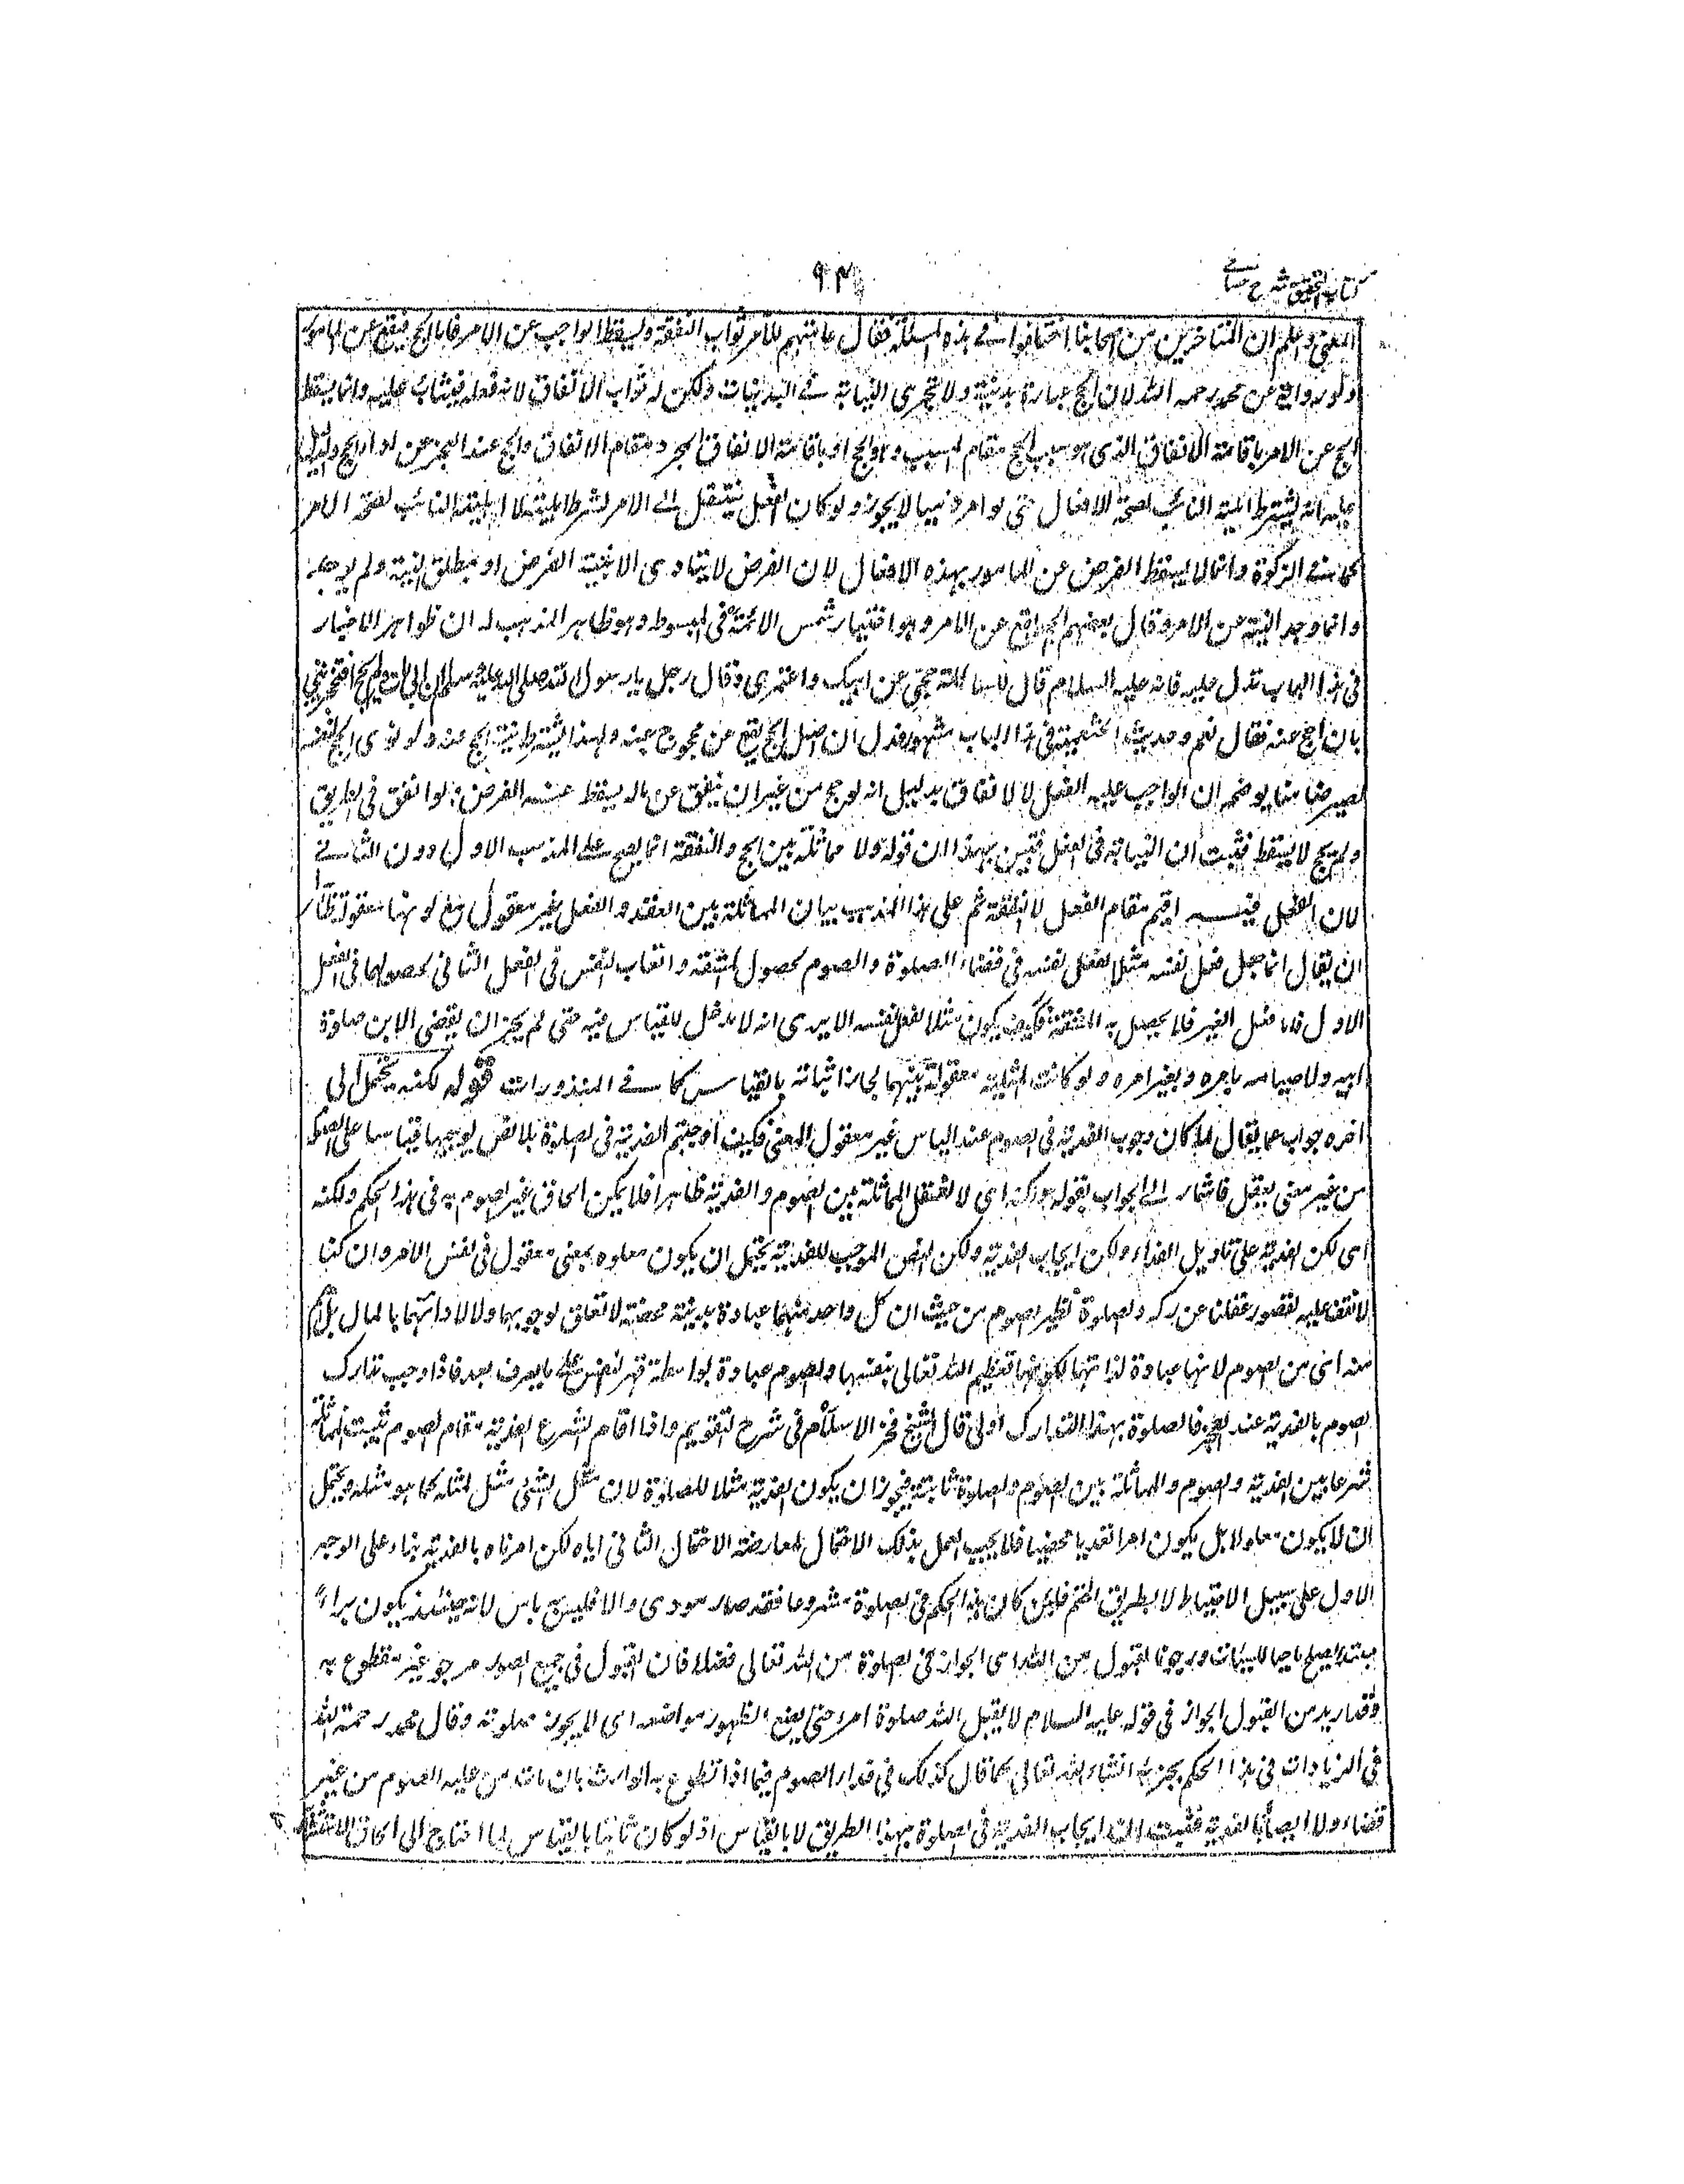 كتاب التحقيق شرح حسامى
٩٣
المعنى واعلم ان المتاخرين من اصحابنا اختلفوا فى هذه المسئلة فقال عامتهم للآمر ثواب النفقة ويسقط الواجب عن الامر فاما الحج فيقع عن المامور
وهو رواية عن محمد رحمه الله لان الحج عبادة بدنية ولا تجرى النيابة فى البدنيات ولكن له ثواب الانفاق لانه فعله فيثاب عليه وانما يسقط
الحج عن الامر باقامة الانفاق الذى هو سبب الحج مقام المسبب وهو الحج او باقامة الانفاق المجرد مقام الانفاق والحج عند العجز عن اداء الحج ودليل
عليه انه يشترط اهلية النائب لصحة الافعال حتى لو امر ذميا لا يجوز ولو كان الفعل ينتقل الى الامر لشرط اهليته لا اهلية النائب لصحة الامر
كما فى الزكوة وانما لا يسقط الفرض عن المامور بهذه الافعال لان الفرض لا يتادى الا بنية الفرض او بمطلق النية ولم يوجد
وانما وجد النية عن الامر وقال بعضهم الحج يقع عن الامر وهو اختيار شمس الائمة فى المبسوط وهو ظاهر المذهب له ان ظواهر الاخبار
فى هذا الباب تدل عليه فانه عليه السلام قال للسائلة حجى عن ابيك واعتمرى وقال رجل يا رسول الله صلى الله عليه وسلم ان ابى مات ولم يحج افيجزئنى
بان احج عنه فقال نعم وحديث الخثعمية فى هذا الباب مشهور فدل ان اصل الحج يقع عن محجوج عنه ولهذا يشترط نية الحج عنه ولو نوى الحج لنفسه
يصير ضامنا يوضحه ان الواجب عليه الفعل لا الانفاق بدليل انه لو حج من غير ان ينفق عن ماله يسقط عنه الفرض ولو انفق فى الطريق
ولم يحج لا يسقط فثبت ان النيابة فى الفعل فتبين بهذا ان قوله ولا مماثلة بين الحج والنفقة انما يصح على المذهب الاول دون الثانى
لان الفعل فيه اقيم مقام الفعل لا النفقة ثم على هذا المذهب بيان المماثلة بين الفعل والفعل غير معقول مع كونها معقولة ظاهرا
ان يقال انما جعل فعل نفسه مثلا لفعل نفسه فى قضاء الصلوة والصوم لحصول المشقة واتعاب النفس فى الفعل الثانى كحصولها فى الفعل
الاول فاما فعل الغير فلا يحصل به المشقة فكيف يكون مثلا لفعل نفسه الا يرى انه لا مدخل للقياس فيه حتى لم يجز ان يقضى الابن صلوة
ابيه ولا صيامه بامره وبغير امره ولو كانت المثلية معقولة بينهما لجاز اثباته بالقياس كما فى المنذورات قوله لكنه يحتمل الى
اخره جواب عما يقال لما كان وجوب الفدية فى الصوم عند الياس غير معقول المعنى فكيف اوجبتم الفدية فى الصلوة بلا نص يوجبها قياسا على الصوم
من غير معنى يعقل فاشار الى الجواب بقوله لكنه اى لا نعقل المماثلة بين الصوم والفدية ظاهرا فلا يمكن الحاق غير الصوم به فى هذا الحكم ولكنه
اى لكن الفدية على تاويل الفداء ولكن ايجاب الفدية ولكن النص الموجب للفدية يحتمل ان يكون معلوله بمعنى معقول فى نفس الامر وان كنا
لا نقف عليه لقصور عقلنا عن دركه والصلوة نظير الصوم من حيث ان كل واحد منهما عبادة بدنية محضة لا تعلق لوجوبها ولا لادائها بالمال بل اهم
منه اى من الصوم لانها عبادة لذاتها لكونها تعظيم الله تعالى بنفسها والصوم عبادة بواسطة قهر النفس على ما يعرف بعد فاذا وجب تدارك
الصوم بالفدية عند العجز فالصلوة بهذا التدارك اولى قال الشيخ فخر الاسلام فى شرح التقويم واذا اقام الشرع الفدية مقام الصوم ثبتت المماثلة
شرعا بين الفدية والصوم والمماثلة بين الصوم والصلوة ثابتة فيجوز ان يكون الفدية مثلا للصلوة لان مثل الشئ مثل لمثله كما هو مثله ويحتمل
ان لا يكون معلولا بل يكون امرا تعبديا محضا فلا يجب العمل بذلك الاحتمال لمعارضة الاحتمال الثانى اياه لكن امرناه بالفدية بناء على الوجه
الاول على سبيل الاحتياط لا بطريق الحتم فلئن كان هذا الحكم فى الصلوة مشروعا فقد صار مودى والا فليس به باس لانه حينئذ يكون برا
مبتدا يصلح ماحيا للسيئات ورجونا القبول من الله اى الجواز فى الصلوة من الله تعالى فضلا فان القبول فى جميع الصور مرجو غير مقطوع به
وقد اريد من القبول الجواز فى قوله عليه السلام لا يقبل الله صلوة امرء حتى يضع الطهور مواضعه اى لا يجوز صلوته وقال محمد رحمه الله
فى الزيادات فى هذا الحكم يجزيه انشاء الله تعالى كما قال كذلك فى فداء الصوم فيما اذا تطوع به الوارث بان مات من عليه الصوم من غير
قضاء ولا ايصاء بالفدية فثبت ان ايجاب الفدية فى الصلوة بهذا الطريق لا بالقياس اذ لو كان ثابتا بالقياس لما احتاج الى الحاق الاستثناء